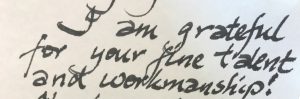 I am grateful
for your fine talent
and workmanship!